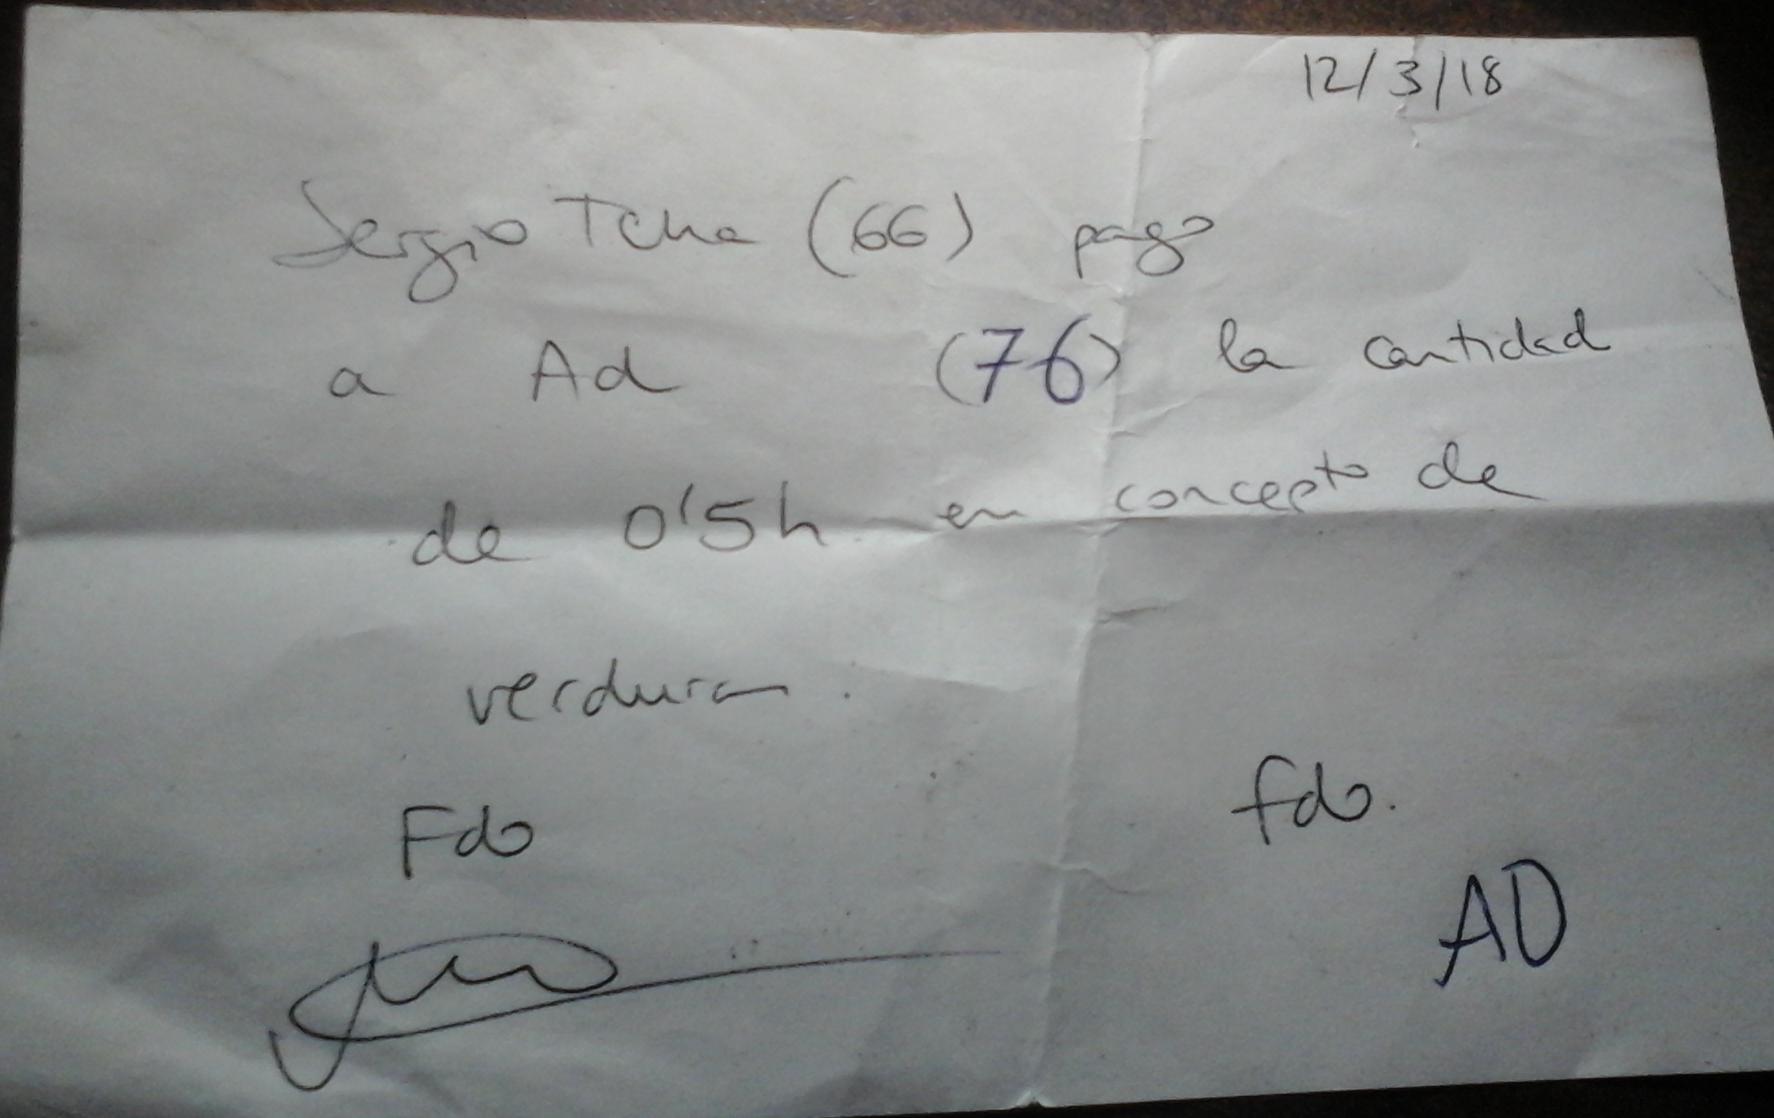 12/3/18
Sergio Tcha (66) pago
a Ad (76) la cantidad
de 0'5h en concepto de
verduras.
Fdo fdo.
AD